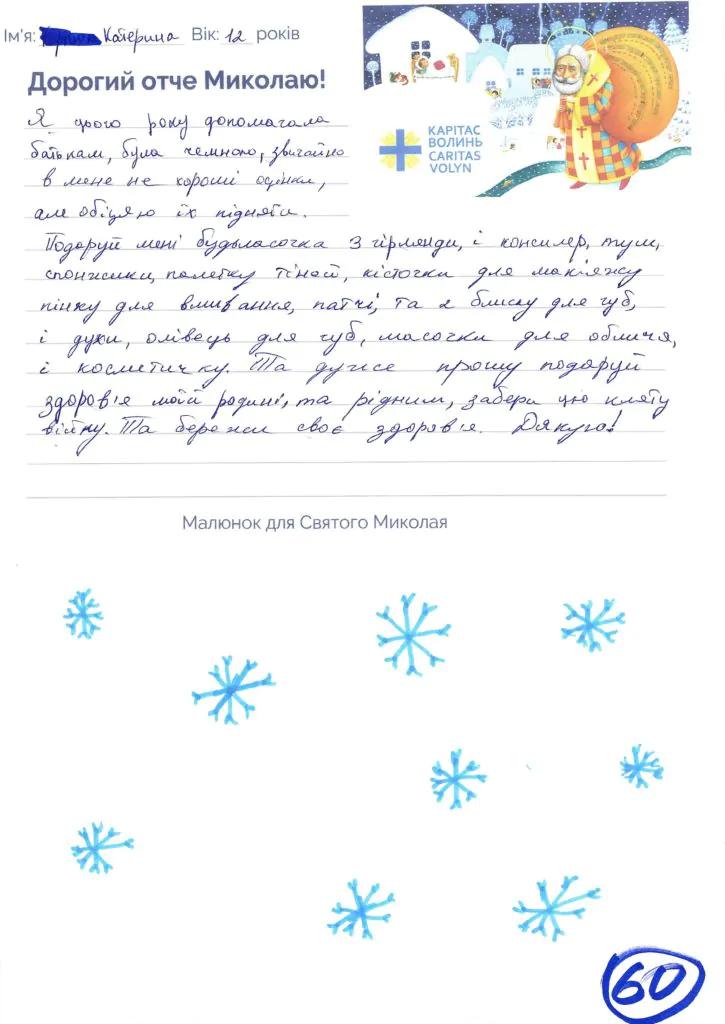 Ім'я: Катерина Вік: 12 років
Дорогий отче Миколаю!
КАРІТАС
ВОЛИНЬ
CARITAS
VOLYN
Я цього року допомагала
батькам, була чемною, звичайно
в мене не хороші оцінки,
але обіцяю їх підняти.
Подаруй мені будьласочка 3 гірлянди, і консилер, туш,
спонжики, палетку тіней, кісточки для макіяжу
пінку для вмивання, патчі, та 2 блиску для губ,
і духи, олівець для губ, масочки для обличя,
і косметичку. Та дуже прошу подаруй
здоров'я моїй родині, та рідним, забери цю кляту
війну. Та бережи своє здоров'я. Дякую!
Малюнок для Святого Миколая
60